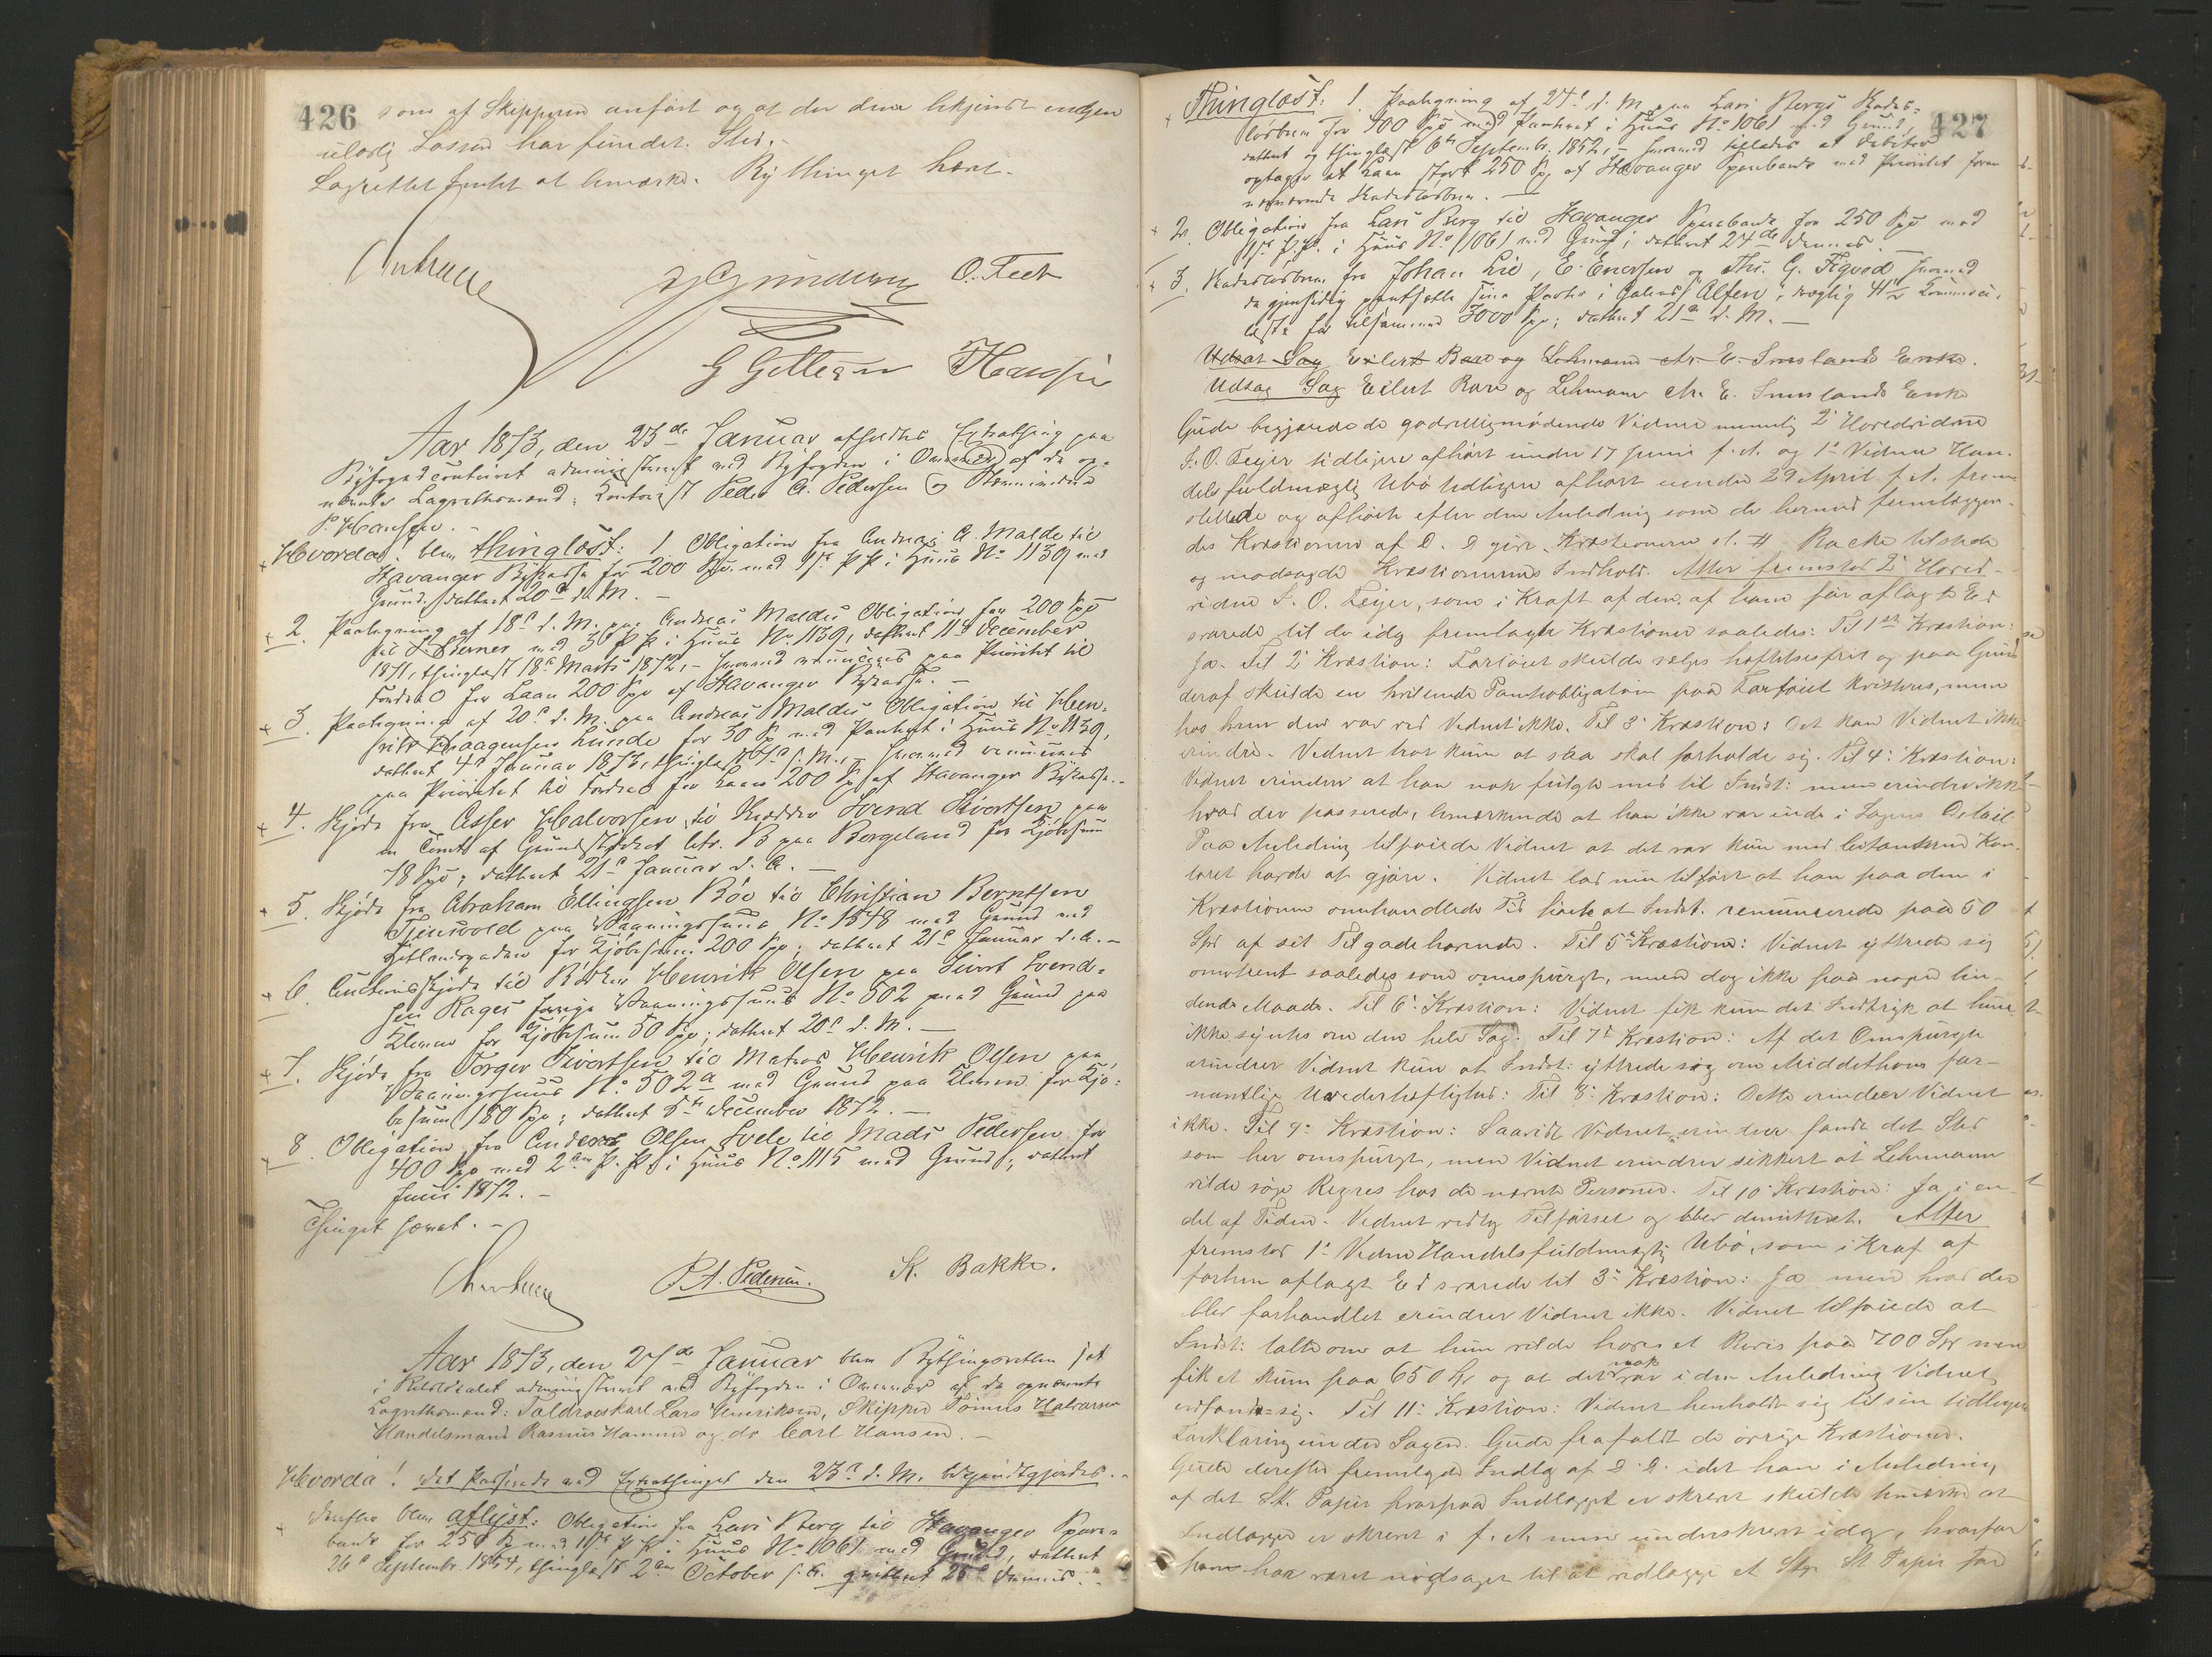 426 som af Skipperen anført og at der ikke bekjendt nogen
ulovlig Lossen har fundet Sted.
Lagrettet fandt at bemærke. Bythinget hævet.
O. Feet
Hansen
Aar 1873, den 23de Januar afholdtes Extrathing paa
Byfogedcontoiret administreret ved Byfogden i Overvær af de op-
nævnte Lagrettesmænd: Kontorist Peder A. Pedersen og
P. Hansen.
Hvorda: blev thinglæst: 1 Obligation fra Andreas A. Malde til
Stavanger Bykasse for 200 Spd. med 1ste P. Pt i Huus No 1139 med
Grund, datteret 20de d. M. –
2. Paategning af 18de d. M. paa Andreas Maldes Obligation for 200 Spd
til Berner med P Pt i Huus No 1139, datteret 11te December
1871, thinglæst 18de Marts 1872, – hvorved renunceres paa Prioritet til
Fordeel for Laan 200 Spd af Stavanger Bykasse. –
3. Paategning af 20de d. M. paa Andreas Maldes Obligation til Hen-
rik Haagensen Lunde for 50 Sp med Panteret i Huus No 1139,
datteret 4de Januar 1873, thinglæst d. M., – hvorved renunceres
paa Prioritet til Fordeel for Laan 200 Sp af Stavanger Bykasse. –
4. Skjøde fra Asser Halvorsen til Svend Sivertsen paa
en Tomt af Grundstykket Litr. B paa Bergeland for Kjøbesum
78 Spd; datteret 21de Januar d. A. –
5. Skjøde fra Abraham Ellingsen Bøe til Christian Berntsen
Tjensvold paa Vaaningshuus No 1548 med Grund ved
Hetlandsgaden for Kjøbesum 200 Spd; datteret 21de Januar d. A. –
6. Auctionsskjøde til Bødker Henrik Olsen paa Sivert Svend-
sen Rages forrige Vaaningshuus No 502 med Grund paa
for Kjøbesum 50 Spd; datteret 20de d. M. –
7. Skjøde fra Torger Sivertsen til Matros Henrik Olsen paa
Vaaningshuus No 502a med Grund paa for Kjø-
besum 180 Spd; datteret 5te December 1872. –
8. Obligation fra Anders Olsen til Mads Pedersen for
400 Spd med 2den P. Pt i Huus No 1115 med Grund, datteret
Juni 1872. –
Thinget hævet. –
P. A. Pedersen. K. Bakke.
Aar 1873, den 27de Januar blev Bythingsretten sat
i Retslocalet administreret ved Byfogden i Overvær af de opnævnte
Lagrettesmænd: Toldroerskarl Lars Henriksen, Skipper Tønnes Halvorsen
Handelsmand Rasmus Hammer og do Carl Hansen. –
Hvorda: det Passerede ved Extrathinget den 23de d. M. bekjendtgjordes. –
Derefter blev aflyst: Obligation fra Lars Berg til Stavanger Spare-
bank for 250 Sp med 1ste P Pt i Huus No 1061 med Grund, datteret
26de Septembr. 1854, thinglæst 2den October s. A. qvitteret 25de dennes. –
427
Thinglæst: 1. Paategning af 24de d. M. paa Lars Bergs Skades-
løsbrev for 400 Spd med Panteret i Huus No 1061 med Grund,
datteret og thinglæst 6te Septembr. 1852, – hvorved tillades at Debitor
optager et Laan stort 250 Sp af Stavanger Sparebank med Prioritet foran
nærværende Skadesløsbrev. –
2. Obligation fra Lars Berg til Stavanger Sparebank for 250 Spd med
1ste P. Pt. i Huus No 1061 med Grund; datteret 24de dennes.
3. Skadesløsbrev fra Johan Lie, E. Enersen og Ths. G. Figved hvorved
de gjensidig pantsætte sine Parter i Galeas "Alfen", drægtig 41½ Commerce-
læster for tilsammen 3000 Spd; datteret 21de d. M. –
Udsat Sag Eilert Bare og Lehmann ctr. E. Smslands Enke.
Udsag Sag Eilert Bare og Lehmann ctr. E. Smslands Enke
Gude begjærede de godvilligmødende Vidner nemlig 2det Hovedvidne
J. O. Feyer tidligere afhørt under 17 Juni f. A. og 1ste Vidne Han-
delsfuldmægtig Ubø tidligere afhørt under 29 April f. A. frem-
stillede og afhørte efter den Anledning som de herved fremlæggen-
des Kvæstioner af D. D. giver. Kvæstionerne sl. H. Racke tilstede
og modsagde Kvæstionernes Indhold. Atter fremstod 2det Hoved-
vidne J. O. Feyer, som i Kraft af den af ham før aflagte Ed
svarede til de idag fremlagte Kvæstioner saaledes: Til 1ste Kvæstion:
Ja. Til 2 Kvæstion: Fartøiet skulde sælges heftelsesfrit og paa Grund
deraf skulde en hvilende Panteobligation paa Fartøiet kvitteres, men
hos hvem den var ved Vidnet ikke. Til 3 Kvæstion: Det kan Vidnet ikke
erindre. Vidnet tror kun at saa skal forholde sig. Til 4: Kvæstion:
Vidnet erindrer at han nok fulgte med til Indst: men erindrer ikke
hvad der passerede, bemærkende at han ikke var inde i Sagens Detail
Paa Anledning tilføiede Vidnet at det var kun med Contoret han
havde at gjøre. Vidnet lod sig tilført at han paa den i
Kvæstionen omhandlede Tid hørte at Indst. renuncerede paa 50
Spd af sit Tilgodehavende. Til 5te Kvæstion: Vidnet yttrede sig
omtrent saaledes som omspurgt, men dog ikke paa nogen bin-
dende Maade. Til 6: Kvæstion: Vidnet fik kun det Indtryk at hun
ikke syntes om den hele Sag. Til 7de Kvæstion: Af det Omspurgte
erindrer Vidnet kun at Indst: yttrede sig om Middelthons for-
mentlige Uvederheftighed: Til 8: Kvæstion: Dette erindrer Vidnet
ikke. Til 9: Kvæstion: Saavidt Vidnet erindrer fandt det Sted
som her omspurgt, men Vidnet erindrer sikkert at Lehmann
vilde søge Regres hos de nævnte Personer. Til 10 Kvæstion: Ja, i en
del af Tiden. Vidnet vedtog Tilførsel og blev dimitteret. Atter
fremstod 1ste Vidne Handelsfuldmægtig Ubø, som i Kraf af
forhen aflagt Ed svarede til 3de Kvæstion: Ja men hvad der
blev forhandlet erindrer Vidnet ikke. Vidnet tilføiede at
Indst: talte om at hun vilde have et Bevis paa 700 Spd men
fik et kun paa 650 Spd og at det nok var i den Anledning Vidnet
indfandt sig. Til 11: Kvæstion: Vidnet henholdt sig til sin tidligere
Forklaring under Sagen. Gude frafaldt de øvrige Kvæstioner.
Gude derefter fremlagde Indlæg af D. D. idet han i Anledning
af det St. Papir hvorpaa Indlægget er skrevet skulde bemærke at
Indlægget er skrevet i f. A. men underskrevet idag, hvorfor
han har været nødsaget til at vedlægge et Stp. St. Papir for